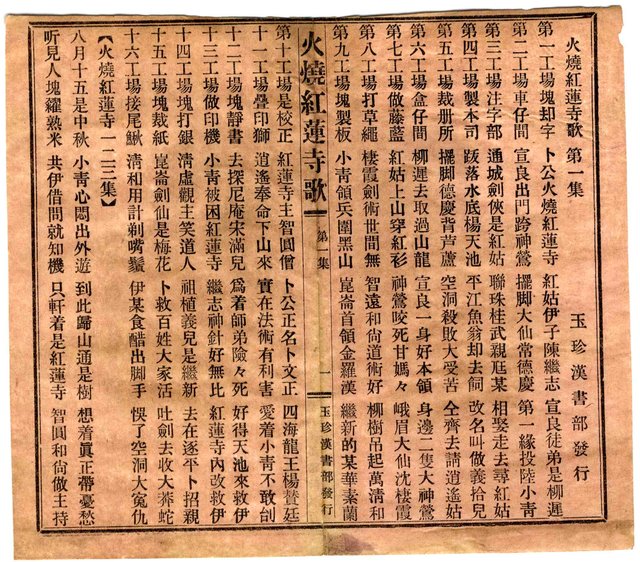 火燒紅蓮寺歌 第一集 玉珍漢書部發行
第一工場塊却字 卜公火燒紅蓮寺 紅姑伊子陳繼志 宣良徒弟是柳遲
第二工場車仔間 宣良出門跨神鶯 擺脚大仙常德慶 第一緣投陸小青
第三工場注字部 通城劍俠是紅姑 聯珠桂武親尫某 相娶走去尋紅姑
第四工場製本司 跋落水底楊天池 平江魚翁却去飼 改名叫做義拾兒
第五工場裁册所 擺脚德慶背芦蘆 空洞殺敗大受苦 仝齊去請逍遙姑
第六工場盒仔間 柳遲去取過山龍 宣良一身好本領 身邊二隻大神鶯
第七工場做藤藍 紅姑上山穿紅衫 神鶯咬死甘媽々 峨眉大仙沈棲霞
第八工場打草繩 棲霞劍術世間無 智遠和尙道術好 柳樹吊起萬淸和
第九工場塊製板 小靑領兵圍黑山 崑崙首領金羅漢 繼新的某華素蘭
火燒紅蓮寺歌 第一集 一 玉珍漢書部發行
第十工場是校正 紅蓮寺主智圓僧 卜公正名卜文正 四海龍王楊贊廷
十一工場疊印獅 逍遙奉命下山來 實在法術有利害 愛着小靑不敢刣
十二工場塊靜書 去探尼庵宋滿兒 爲着師弟險々死 好得天池來救伊
十三工場做印機 小靑被困紅蓮寺 繼志神針好無比 紅蓮寺內改救伊
十四工場塊打銀 淸虛觀主笑道人 祖植義兒是繼新 去在逐平卜招親
十五工場塊裁紙 崑崙劍仙是梅花 卜救百姓大家活 吐劍去收大莽蛇
十六工場接尾鰍 淸和用計剃嘴鬚 伊某食醋出脚手 悞了空洞大寃仇
【火燒紅蓮寺 一二三集】
八月十五是中秋 小靑心悶出外遊 到此歸山通是樹 想着眞正帶憂愁
听見人塊糶熟米 共伊借問就知機 只軒着是紅蓮寺 智圓和尙做主持